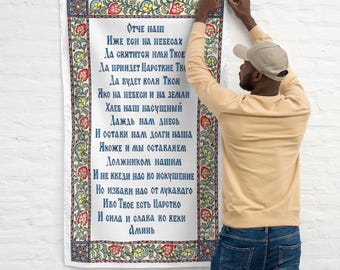 Отче наш
Иже еси на небесах
Да святится имя Твое
Да приидет Царствие Твое
Да будет воля Твоя
Яко на небеси и на земли
Хлеб наш насущный
Даждь нам днесь
И остави нам долги наша
Якоже и мы оставляем
Должником нашим
И не введи нас во искушение
Но избави нас от лукаваго
Ибо Твое есть Царство
И сила и слава во веки
Аминь